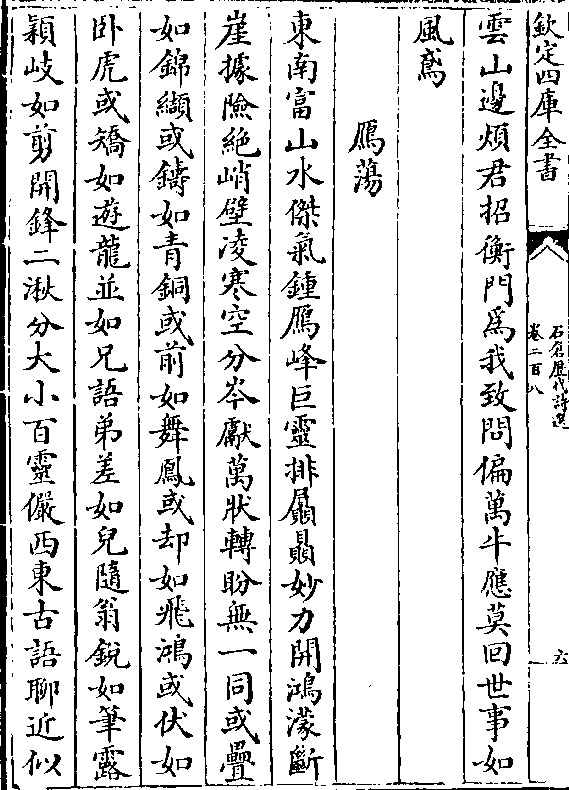 欽定四庫全書
石倉歷代詩選
卷二百八
六
雲山邊煩君招衡門為我致問偏萬牛應莫回世事如
風鳶
鴈蕩
東南富山水傑氣鍾鴈峰巨靈排屭贔妙力開鴻濛斷
崖據險絶峭壁凌寒空分岑獻萬狀轉盼無一同或疊
如錦纈或鑄如青銅或前如舞鳳或却如飛鴻或伏如
卧虎或矯如遊龍並如兄語弟差如兒隨翁銳如筆露
穎岐如剪開鋒二湫分大小百靈儼西東古語聊近似